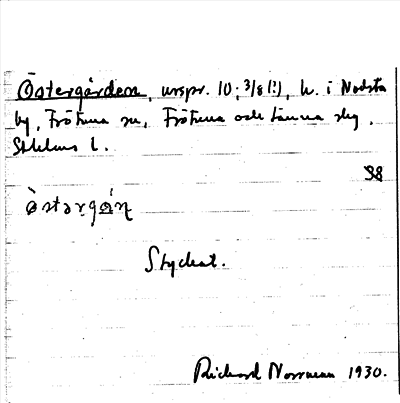 Östergården, urspr. 10; 3/8 (!), h. i Nodsta
by, Frötuna sn, Frötuna och Länna slg,
Sthlms l.
38
Östərgɑ̊ṇ
Stycket.
Richard Norrman 1930.